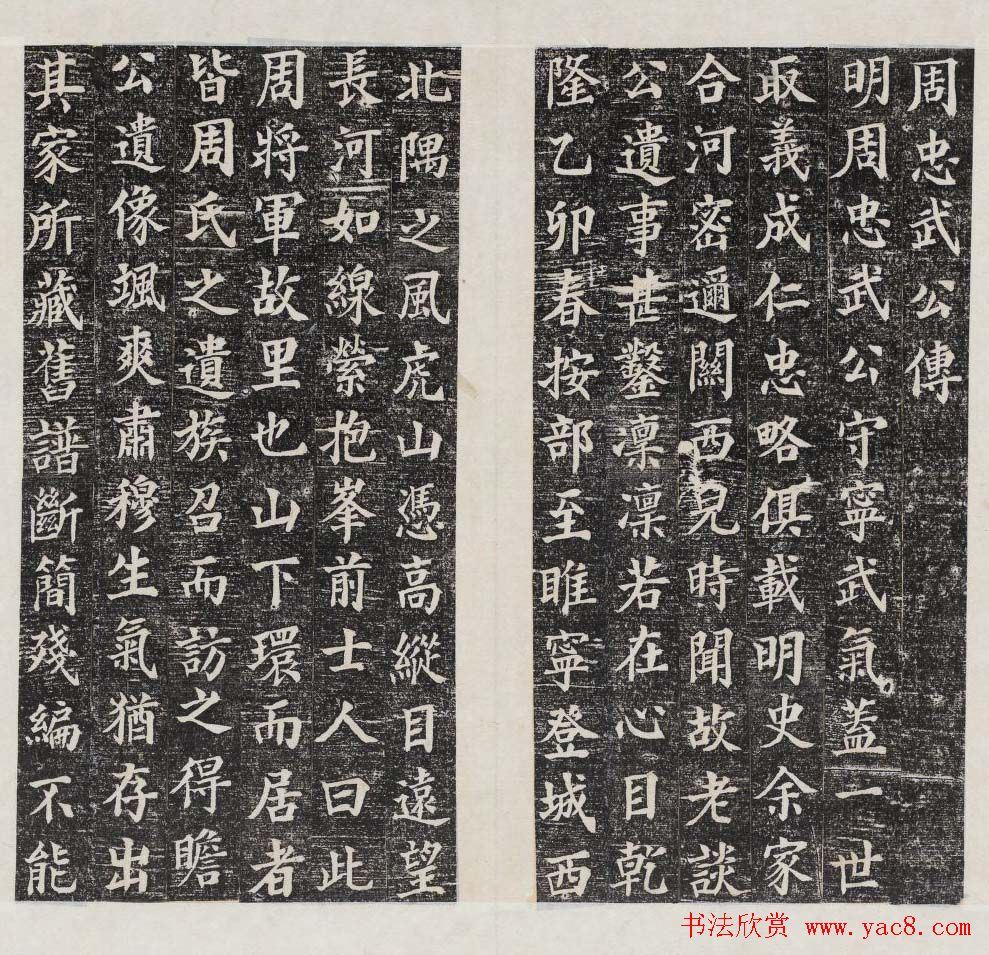 周忠武公傳
明周忠武公守寧武氣蓋一世
取義成仁忠略俱載明史余家
合河密邇關西兒時聞故老談
公遺事甚鑿凛凛若在心目乾
隆乙卯春按部至睢寧登城西
北隅之風虎山憑高縱目遠望
長河如線縈抱峯前士人曰此
周將軍故里也山下環而居者
皆周氏之遺族召而訪之得瞻
公遺像颯爽肅穆生氣猶存出
其家所藏舊譜斷簡殘編不能
书法欣赏 www.yac8.com